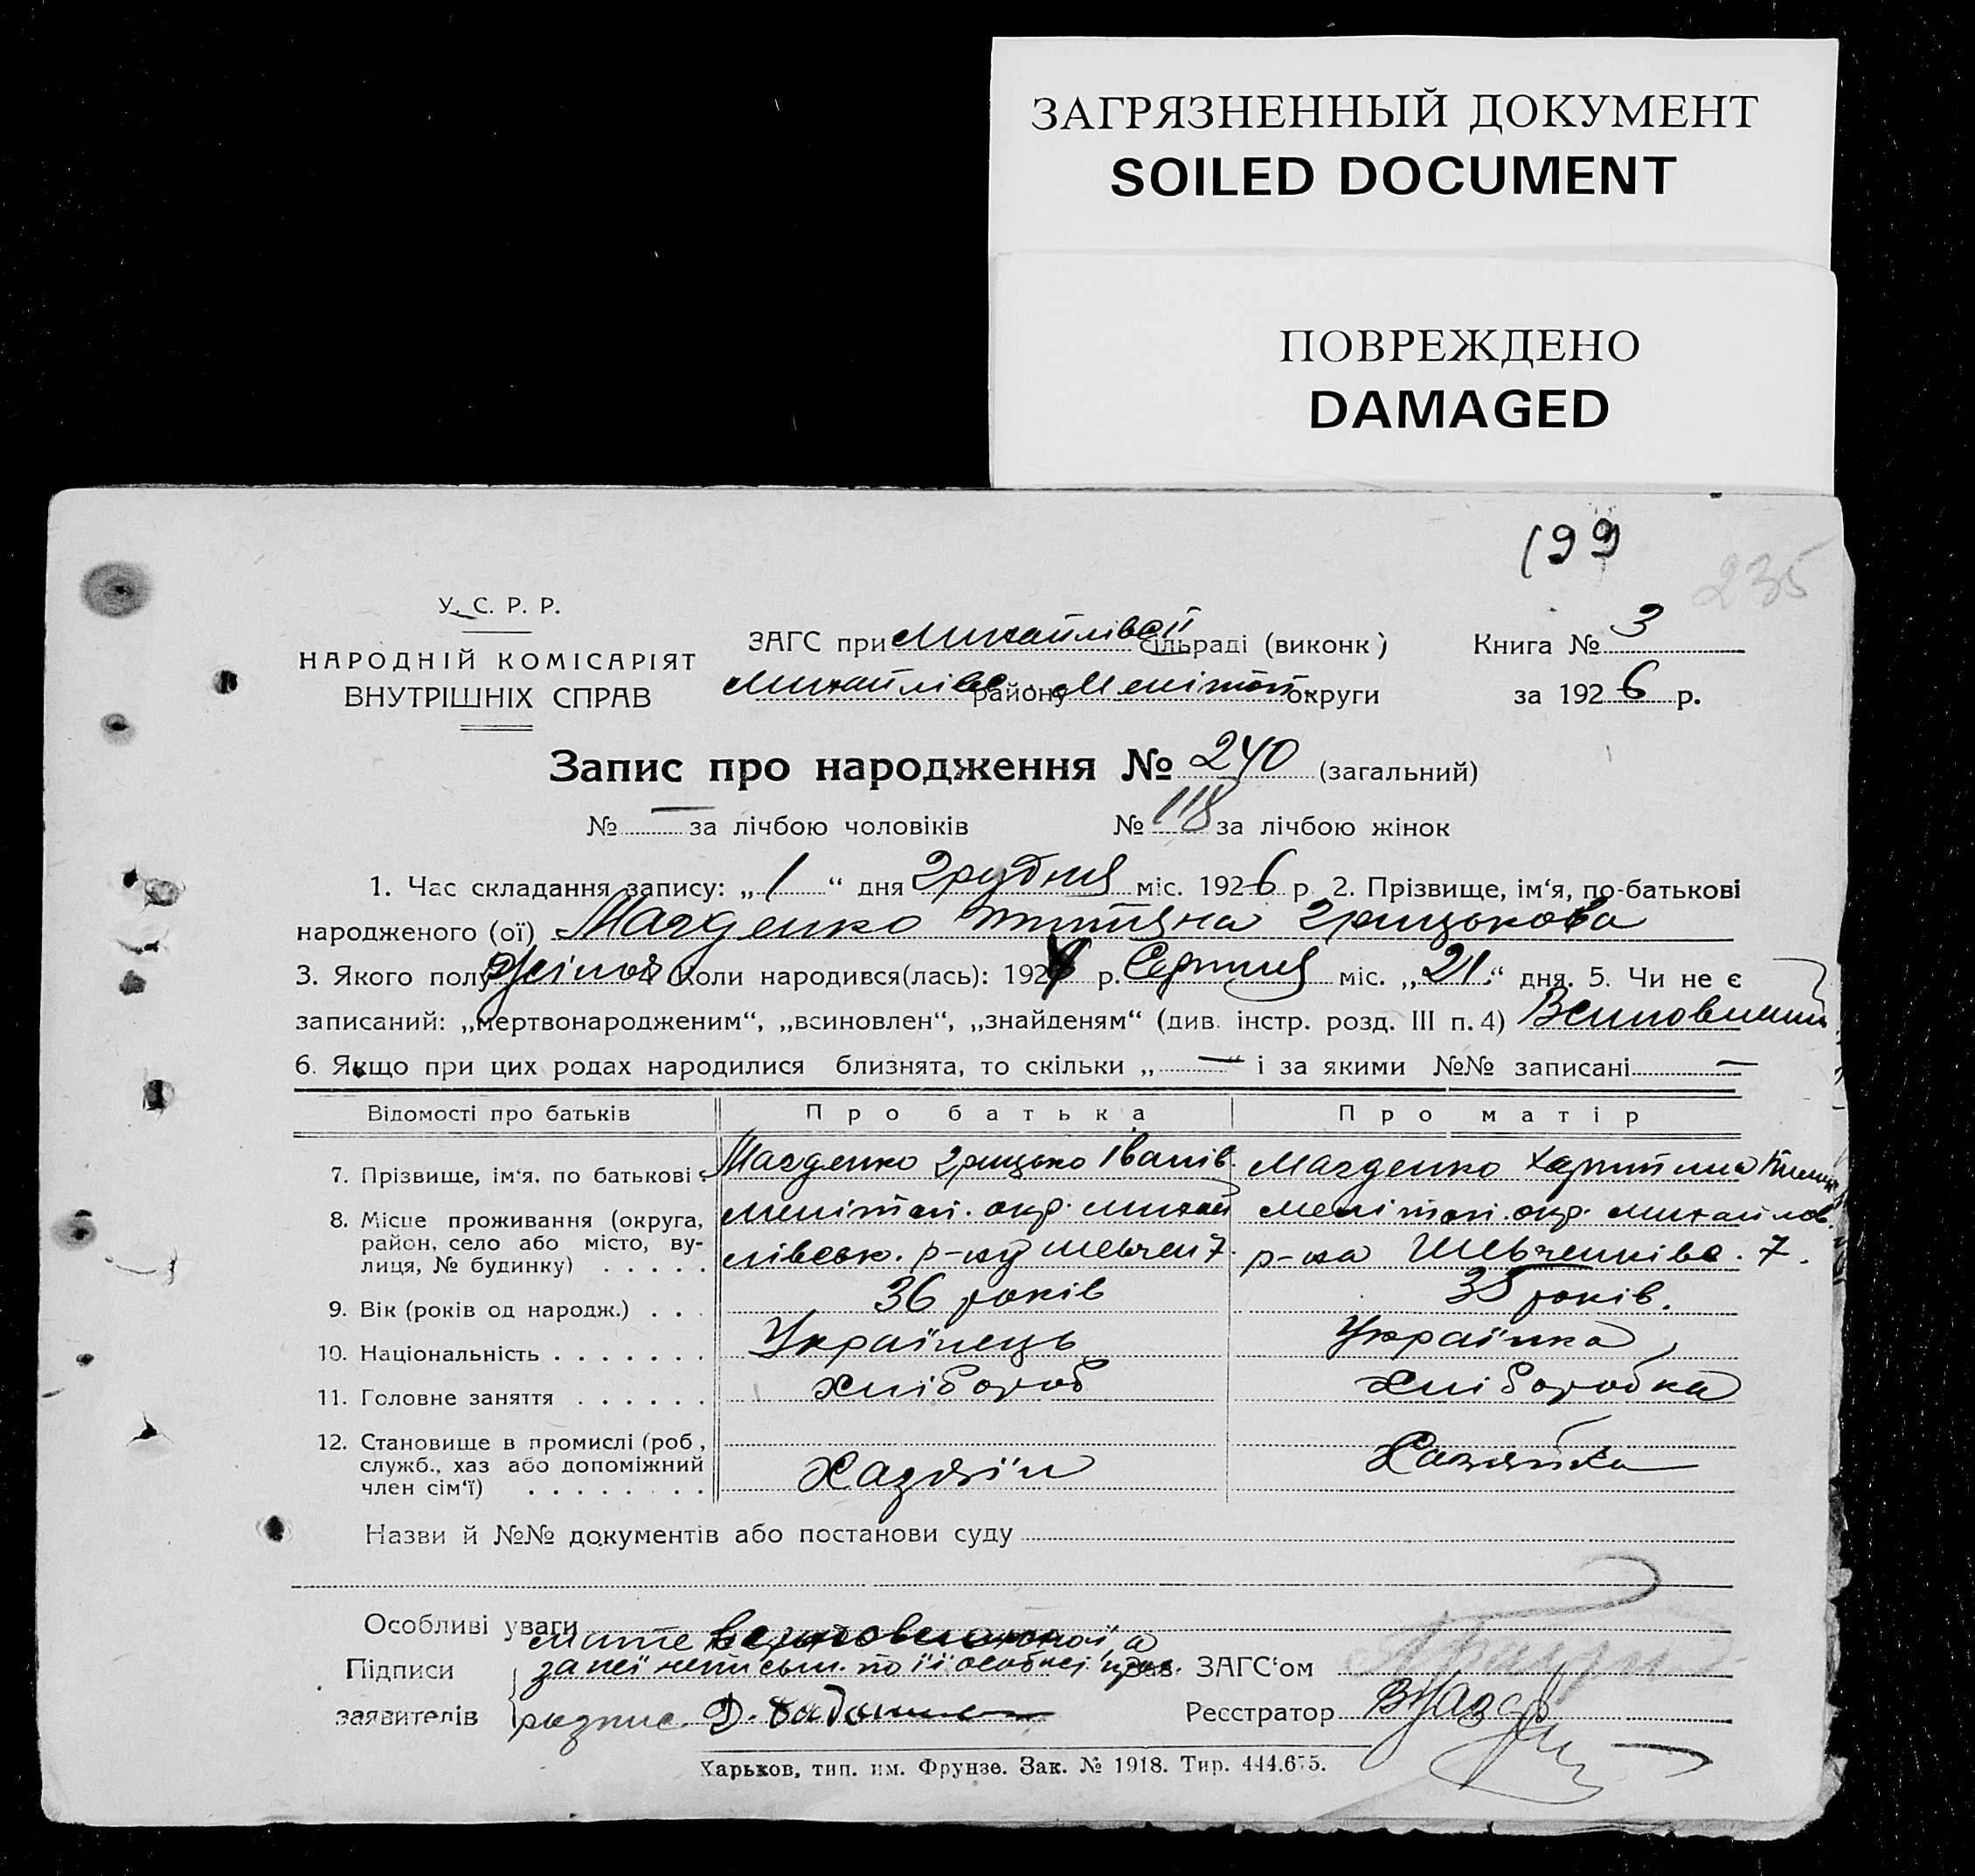 ЗАГРЯЗНЕННЫЙ ДОКУМЕНТ
SOILED DOCUMENT
ПОВРЕЖДЕНО
DAMAGED
199
235
У. С. Р. Р.
НАРОДНІЙ КОМІСАРІЯТ
ВНУТРІШНІХ СПРАВ
ЗАГС при Михайлівсії сільраді (виконк)
Михайлівс. району Мелітоп. округи
Книга № 3
за 1926 р.
Запис про народження № 240 (загальний)
№ — за лічбою чоловіків № 118 за лічбою жінок
1. Час складання запису: „1“ дня Грудня міс. 1926 р. 2. Прізвище, ім‘я, по-батькові
народженого (ої) Магденко Тітяна Грицькова
3. Якого полу Жіноч 4. Коли народився(лась): 192 р. Серпня міс. „21“ дня. 5. Чи не є
записаний: „мертвонародженим“, „всиновлен“, „знайденям“ (див. інстр. розд. III п. 4)
6. Якщо при цих родах народилися близнята, то скільки „—“ і за якими №№ записані —
Відомості про батьків Про батька Про матір
7. Прізвище, ім‘я, по батькові Магденко Грицько Іванів. Магденко Харитина
8. Місце проживання (округа, Мелітоп. окр. Михай Мелітоп. окр. Михайлов.
район, село або місто, ву-
лиця, № будинку) . . . . . лівськ. р-ну Шевчен 7. р-на Шевченківс. 7.
9. Вік (років од народж.) . . . 36 років 35 років.
10. Національність . . . . . . . Українець Українка
11. Головне заняття . . . . . . Хлібороб Хліборобка
12. Становище в промислі (роб,
служб., хаз або допоміжний Хазяїн Хазяйка
член сім‘ї) . . . . . . . .
Назви й №№ документів або постанови суду
Особливі уваги
Підписи за неї неписьм. по її особист. прох. Зав. ЗАГС‘ом
заявителів розпис. Д. Реєстратор
Харьков, тип. им. Фрунзе. Зак. № 1918. Тир. 444.675.